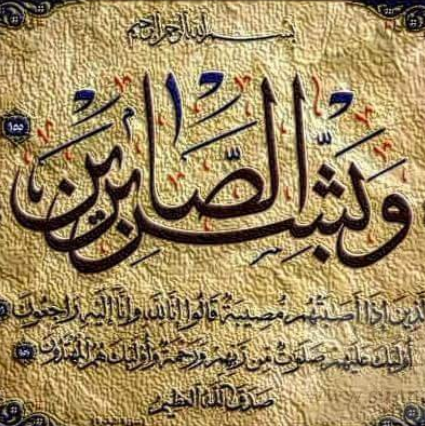 بسم الله الرحمن الرحيم
وَبَشِّرِ الصَّابِرِينَ ١٥٥
الَّذِينَ إِذَا أَصَابَتْهُمْ مُصِيبَةٌ قَالُوا إِنَّا لِلَّهِ وَإِنَّا إِلَيْهِ رَاجِعُونَ
أُولَٰئِكَ عَلَيْهِمْ صَلَوَاتٌ مِنْ رَبِّهِمْ وَرَحْمَةٌ وَأُولَٰئِكَ هُمُ الْمُهْتَدُونَ
صدق الله العظيم